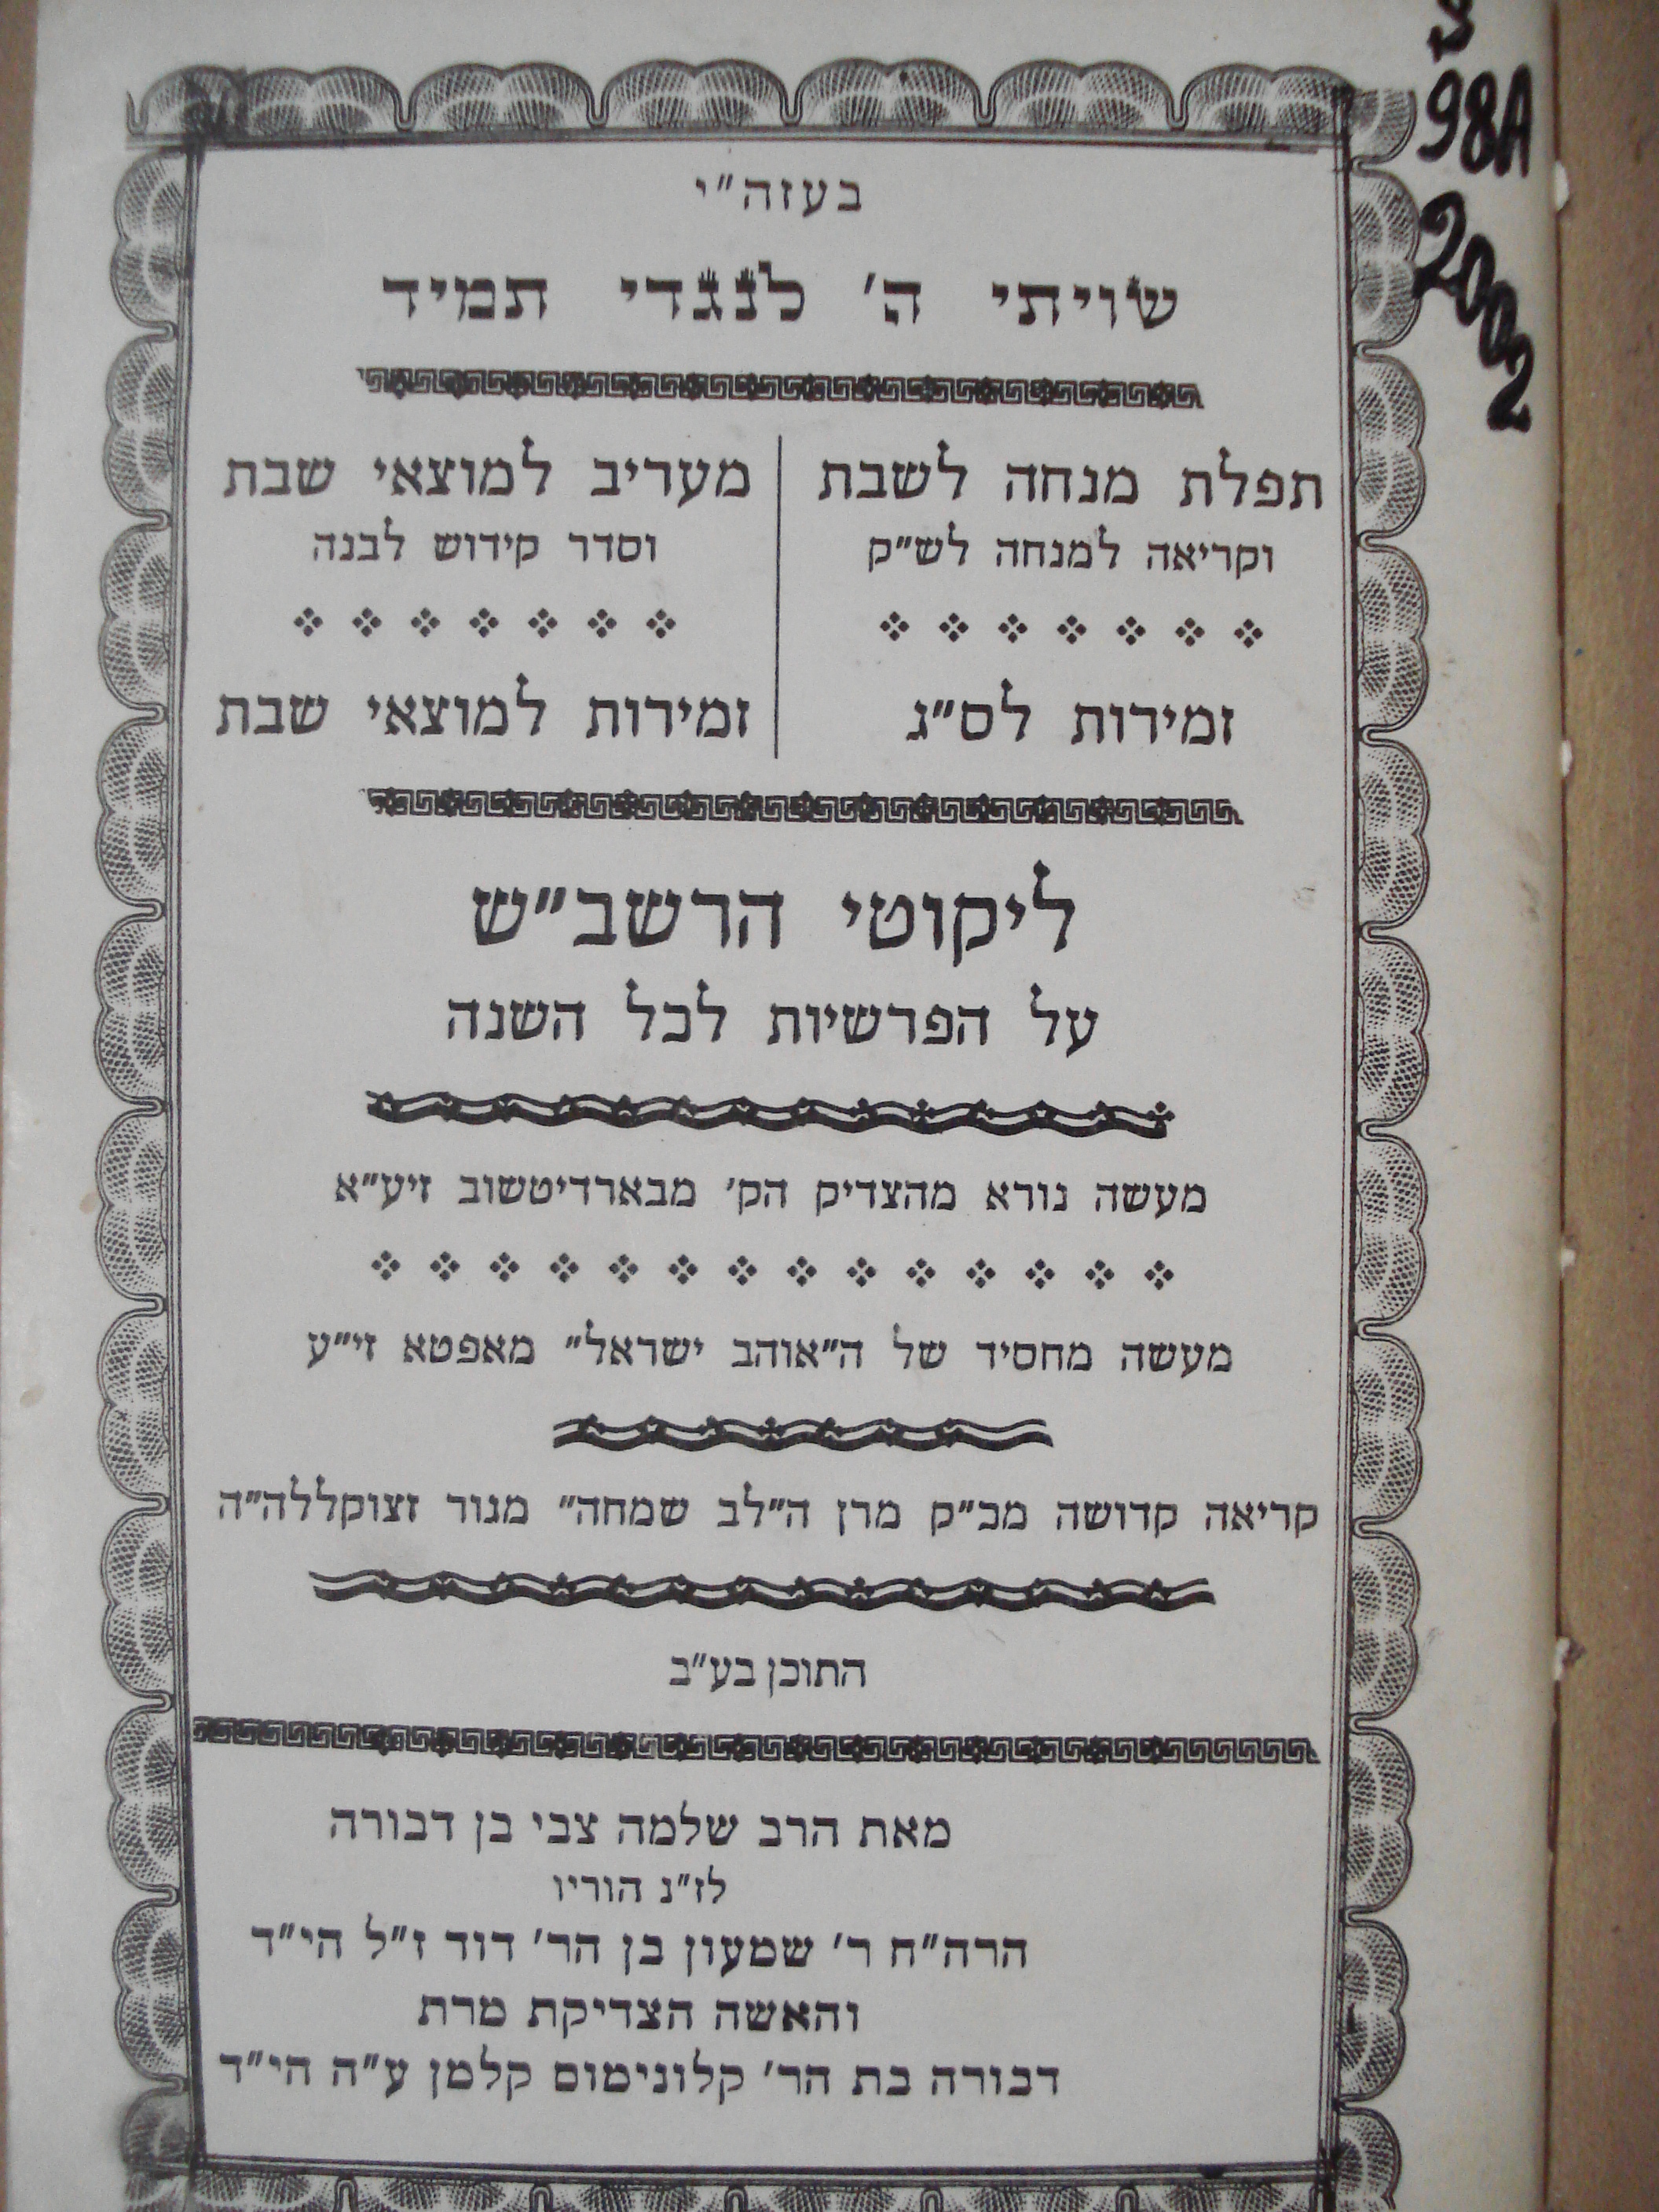 98A
2002
בעזה"י
שויתי ה' לנגדי תמיד
תפלת מנחה לשבת
וקריאה למנחה לש"ק
זמירות לס"ג
מעריב למוצאי שבת
וסדר קידוש לבנה
זמירות למוצאי שבת
ליקוטי הרשב"ש
על הפרשיות לכל השנה
מעשה נורא מהצדיק הק' מבארדיטשוב זיע"א
מעשה מחסיד של ה"אוהב ישראל" מאפטא זי"ע
קריאה קדושה מכ"ק מרן ה"לב שמחה" מגור זצוקללה"ה
התוכן בע"ב
מאת הרב שלמה צבי בן דבורה
לז"נ הוריו
הרה"ח ר' שמעון בן הר' דוד ז"ל הי"ד
והאשה הצדיקת מרת
דבורה בת הר' קלונימוס קלמן ע"ה הי"ד